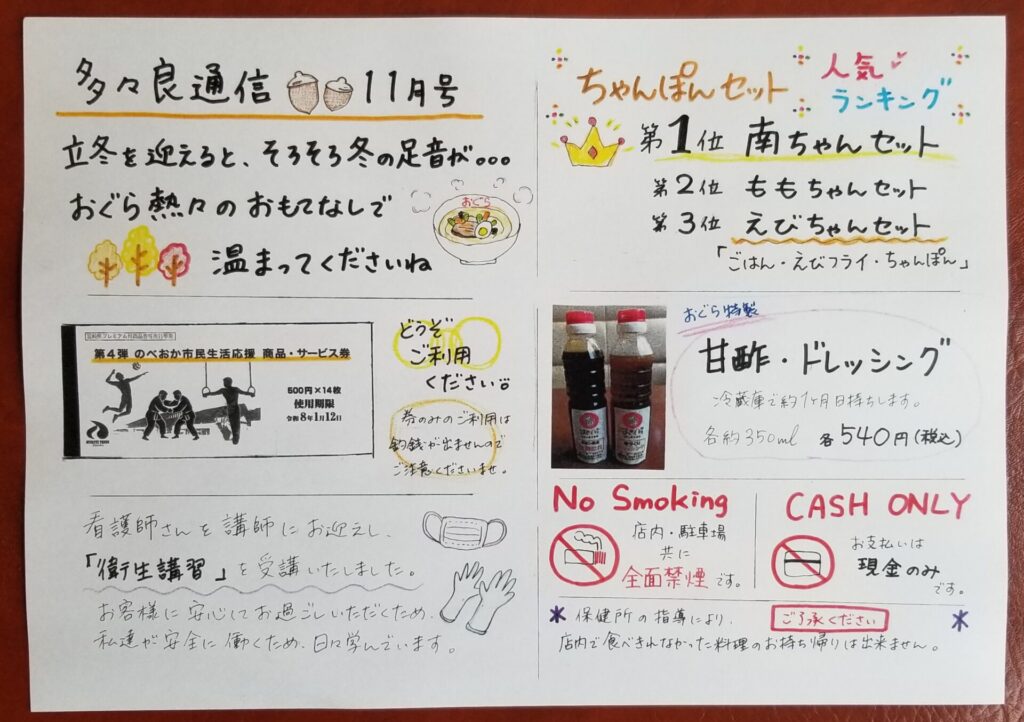 多々良通信 11月号
立冬を迎えると、そろそろ冬の足音が。。。
おぐら熱々のおもてなしで
おぐら
温まってくださいね
第4弾 のべおか市民生活応援 商品・サービス券
500円×14枚
使用期限
令和8年1月12日
どうぞ
ご利用
ください。
券のみのご利用は
釣銭が出ませんので
ご注意くださいませ。
看護師さんを講師にお迎えし、
「衛生講習」を受講いたしました。
お客様に安心してお過ごしいただくため、
私達が安全に働くため、日々学んでいます。
ちゃんぽんセット
人気
ランキング
第1位 南ちゃんセット
第2位 ももちゃんセット
第3位 えびちゃんセット
「ごはん・えびフライ・ちゃんぽん」
おぐら特製
甘酢・ドレッシング
冷蔵庫で約1ヶ月日持ちします。
各約350ml 各540円(税込)
No Smoking
店内・駐車場
共に
全面禁煙です。
CASH ONLY
お支払いは
現金のみ
です。
* 保健所の指導により、 ご了承ください *
店内で食べきれなかった料理のお持ち帰りは出来ません。